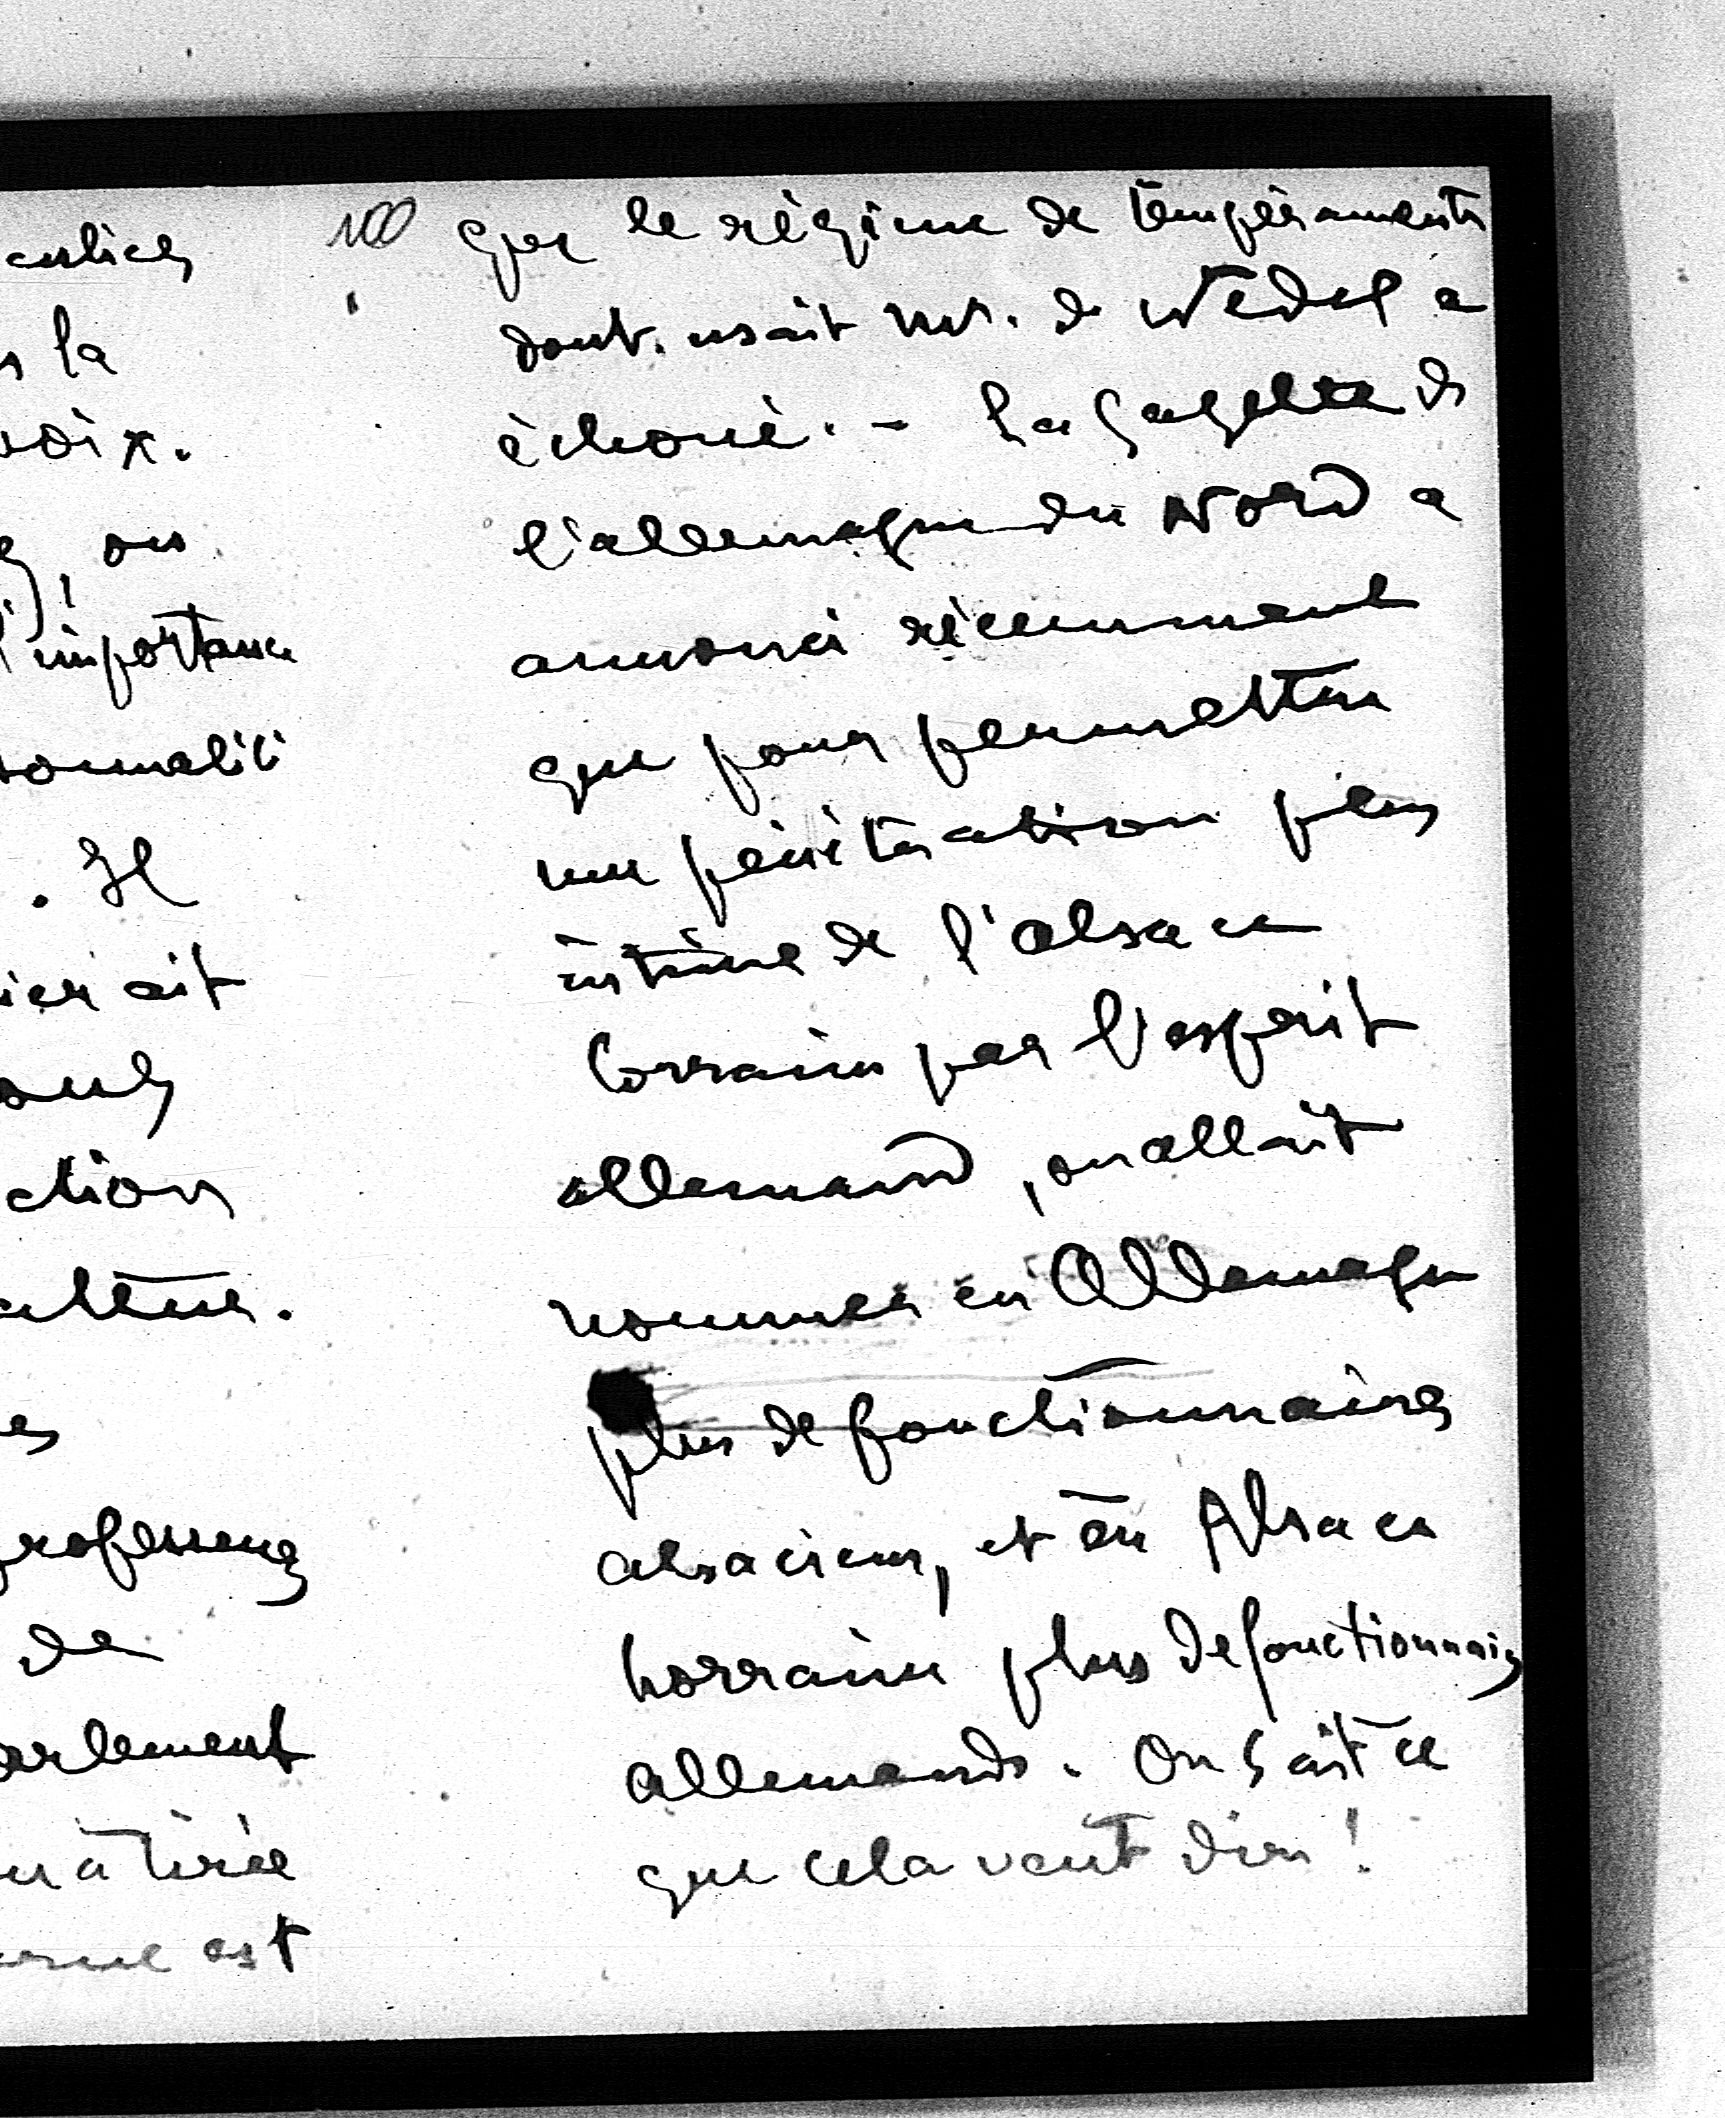 la
oix.
on
l'importance
. Il
ait
ction
professeurs
de
arlement
a tirée
est
100
que le régime de tempéraments
dont usait M. de Wedel a
échoué. - La Gazette de
l'allemagne du Nord a
annoncé récemment
que pour permettre
une pénétration plus
intime de l'alsace
lorraine par l'esprit
allemand, on allait
nommer en Allemagne
plus de fonctionnaires
alsaciens, et en Alsace
Lorraine plus de fonctionnaires
allemands. On sait ce
que cela veut dire !